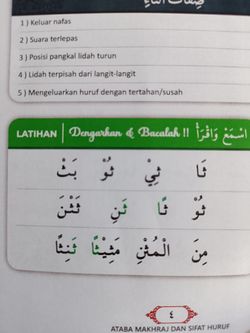 صِفَاتُ الثَّاءِ
1 ) Keluar nafas
2 ) Suara terlepas
3 ) Posisi pangkal lidah turun
4 ) Lidah terpisah dari langit-langit
5 ) Mengeluarkan huruf dengan tertahan/susah
LATIHAN | Dengarkan & Bacalah !! اِسْمَعْ وَاقْرَأْ
ثَا ثِيْ ثُوْ بَثْ
ثُوْ ثًا ثَنِ ثَثْنَ
مِنَ الْمُثْنِ مَثِيْثًا ثَنِثًا
٤
ATABA MAKHRAJ DAN SIFAT HURUF